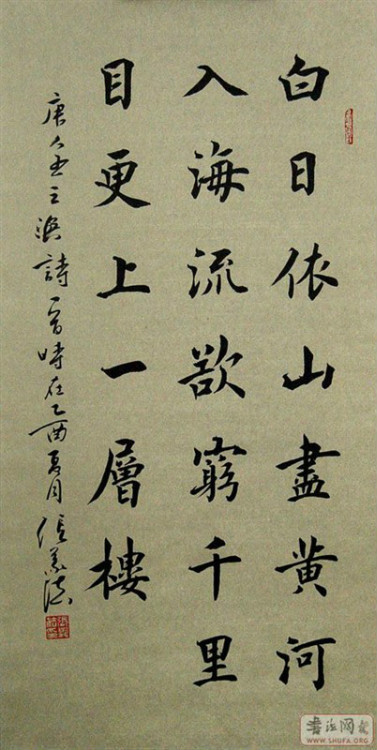 白日依山盡黄河
入海流欲窮千里
目更上一層樓
唐人王之渙詩一首時在乙酉夏月
WWW.SHUFA.ORG